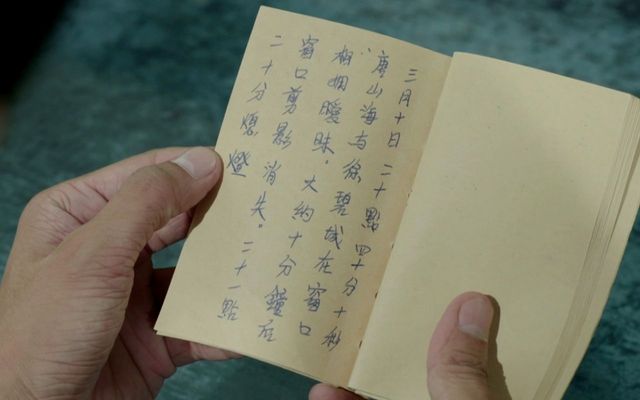 三月十日二十點四十分十秒
唐山海与徐碧城在窗口
相拥曖昧。大約十分鐘后
窗口剪影消失。二十一點
二十分熄燈